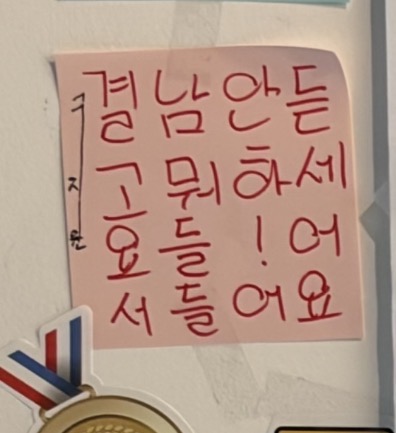 결남안듣
고뭐하세
요들!어
서들어요